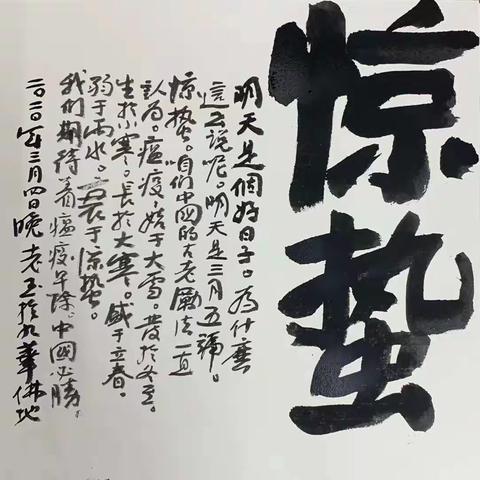 惊蛰
明天是個好日子。為什麽
這么说呢。明天是三月五號。
惊蛰。咱们中國的古老曆法一直
認为。瘟疫，始于大雪。发於冬至。
生於小寒。長於大寒。盛于立春。
弱于雨水。衰于惊蛰。
我们期待着瘟疫早除。中國必勝。
二〇二〇年三月四日晚老王於九華佛地